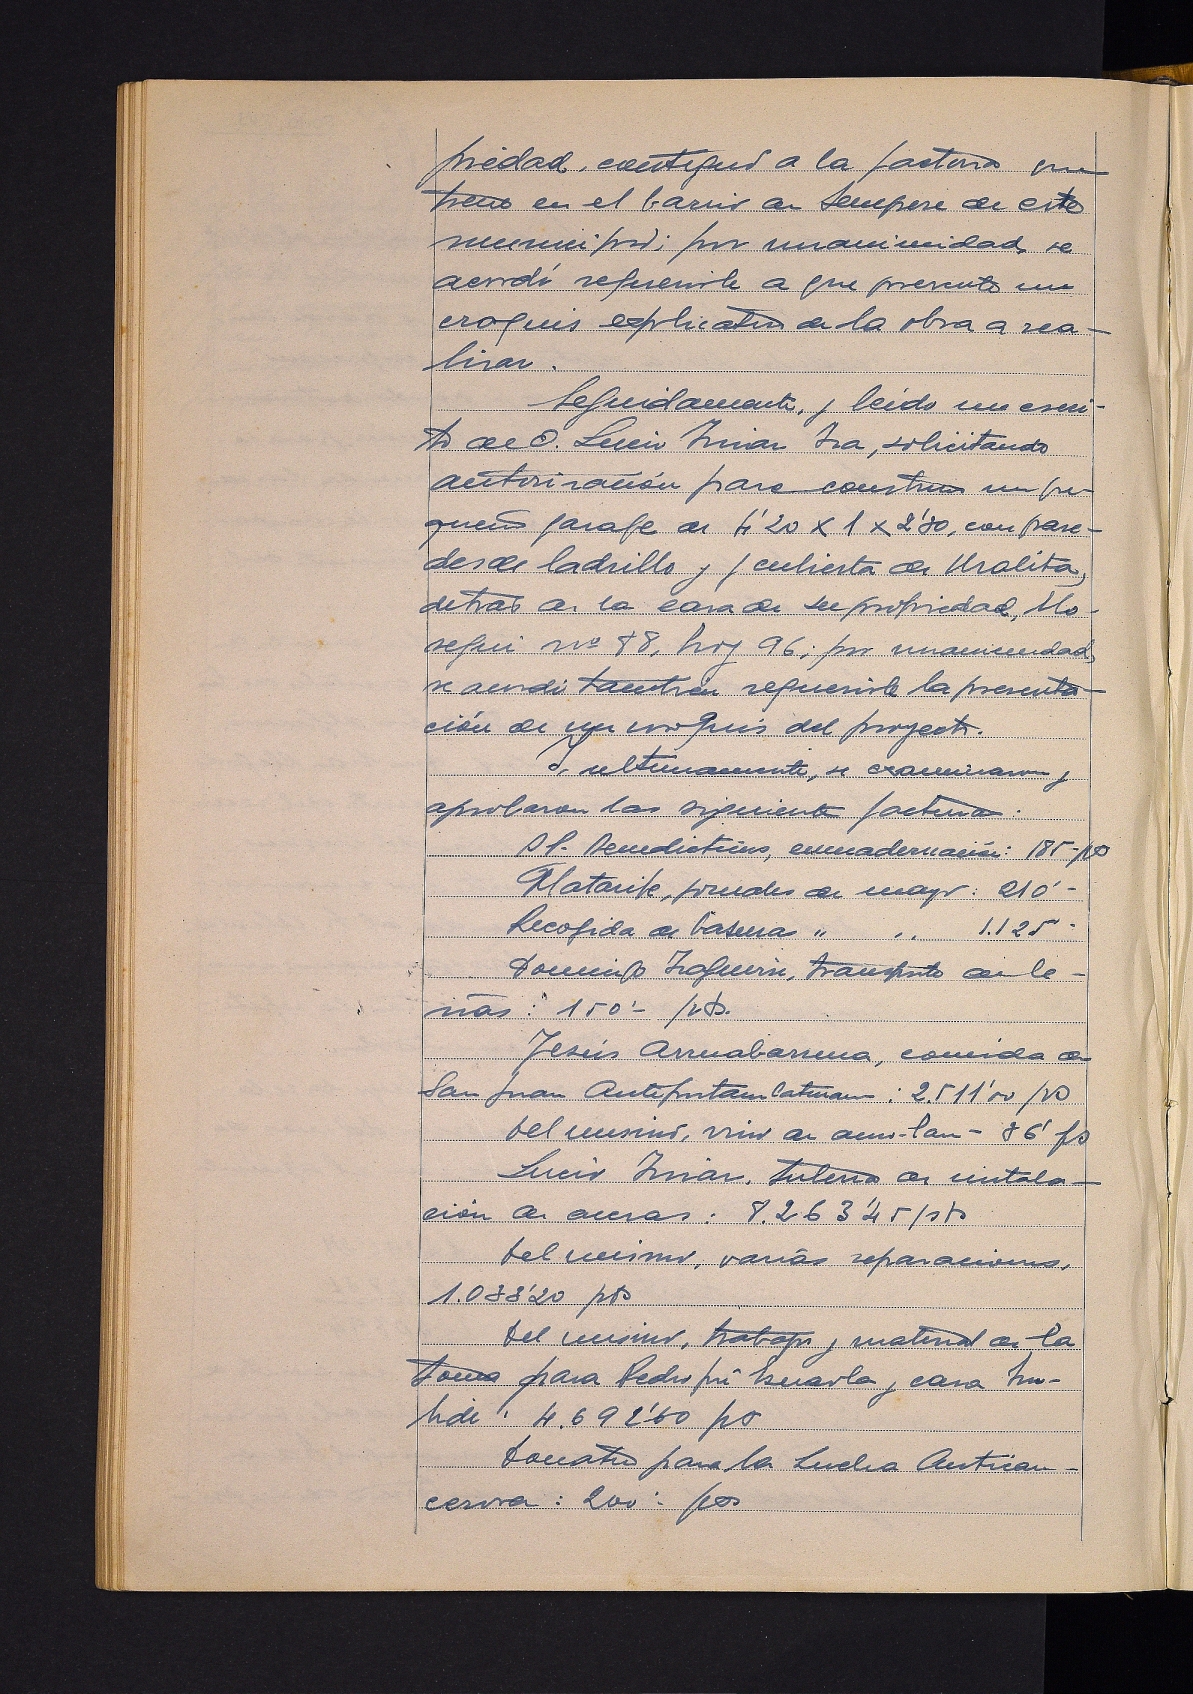 piedad, contiguo a la factoria que
tiene en el barrio de Sempere de este
municipio; por unanimidad, se
acordó requerirle a que presente un
croquis explicativo de la obra a rea-
lizar.
Seguidamente, y leido un escri-
to de D. Lucio Iriar Ira, solicitando
autorización para construir un pe-
queño garage de 4'20 x 1 x 2'80, con pare-
des de ladrillo y cubierta de Uralita,
detras de la casa de su propiedad,
nº 88, hoy 96; por unanimidad,
se acordó tambien requerirle la presenta-
ción de un croquis del proyecto.
Y, ultimamente, se examinaron y
aprobaron las siguientes facturas:
PP. Benedictinos, encuadernación: 185- pts
de mayo: 210'-
Recogida de basuras " " 1.125-
Domingo Irogueria, transporte de le-
ñas: 150'- pts.
Jesús Arruabarrena, comida de
San Juan Anteportamlatinam: 2.511'00 pts
Del mismo, vino de 86' pts
Lucio Iriar, tuberia de instala-
ción de aceras: 8.263'45 pts
Del mismo, varias reparaciones,
1.038'20 pts
Del mismo, trabajo y material de la
toma para Pedro Esnaola y casa
4.692'60 pts
Donativo para la Lucha Antican-
cerosa: 200'- pts